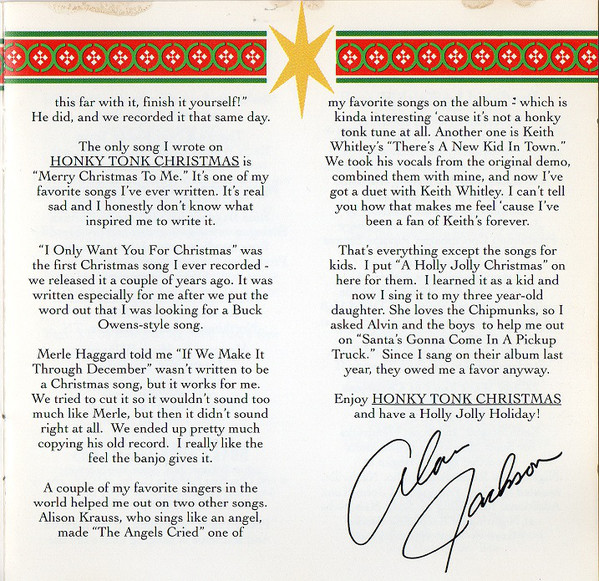 this far with it, finish it yourself!”
He did, and we recorded it that same day.
The only song I wrote on
HONKY TONK CHRISTMAS is
“Merry Christmas To Me.” It’s one of my
favorite songs I’ve ever written. It’s real
sad and I honestly don’t know what
inspired me to write it.
“I Only Want You For Christmas” was
the first Christmas song I ever recorded -
we released it a couple of years ago. It was
written especially for me after we put the
word out that I was looking for a Buck
Owens-style song.
Merle Haggard told me “If We Make It
Through December” wasn’t written to be
a Christmas song, but it works for me.
We tried to cut it so it wouldn’t sound too
much like Merle, but then it didn’t sound
right at all. We ended up pretty much
copying his old record. I really like the
feel the banjo gives it.
A couple of my favorite singers in the
world helped me out on two other songs.
Alison Krauss, who sings like an angel,
made “The Angels Cried” one of
my favorite songs on the album - which is
kinda interesting ‘cause it’s not a honky
tonk tune at all. Another one is Keith
Whitley’s “There’s A New Kid In Town.”
We took his vocals from the original demo,
combined them with mine, and now I’ve
got a duet with Keith Whitley. I can’t tell
you how that makes me feel ‘cause I’ve
been a fan of Keith’s forever.
That’s everything except the songs for
kids. I put “A Holly Jolly Christmas” on
here for them. I learned it as a kid and
now I sing it to my three year-old
daughter. She loves the Chipmunks, so I
asked Alvin and the boys to help me out
on “Santa’s Gonna Come In A Pickup
Truck.” Since I sang on their album last
year, they owed me a favor anyway.
Enjoy HONKY TONK CHRISTMAS
and have a Holly Jolly Holiday!
Alan
Jackson